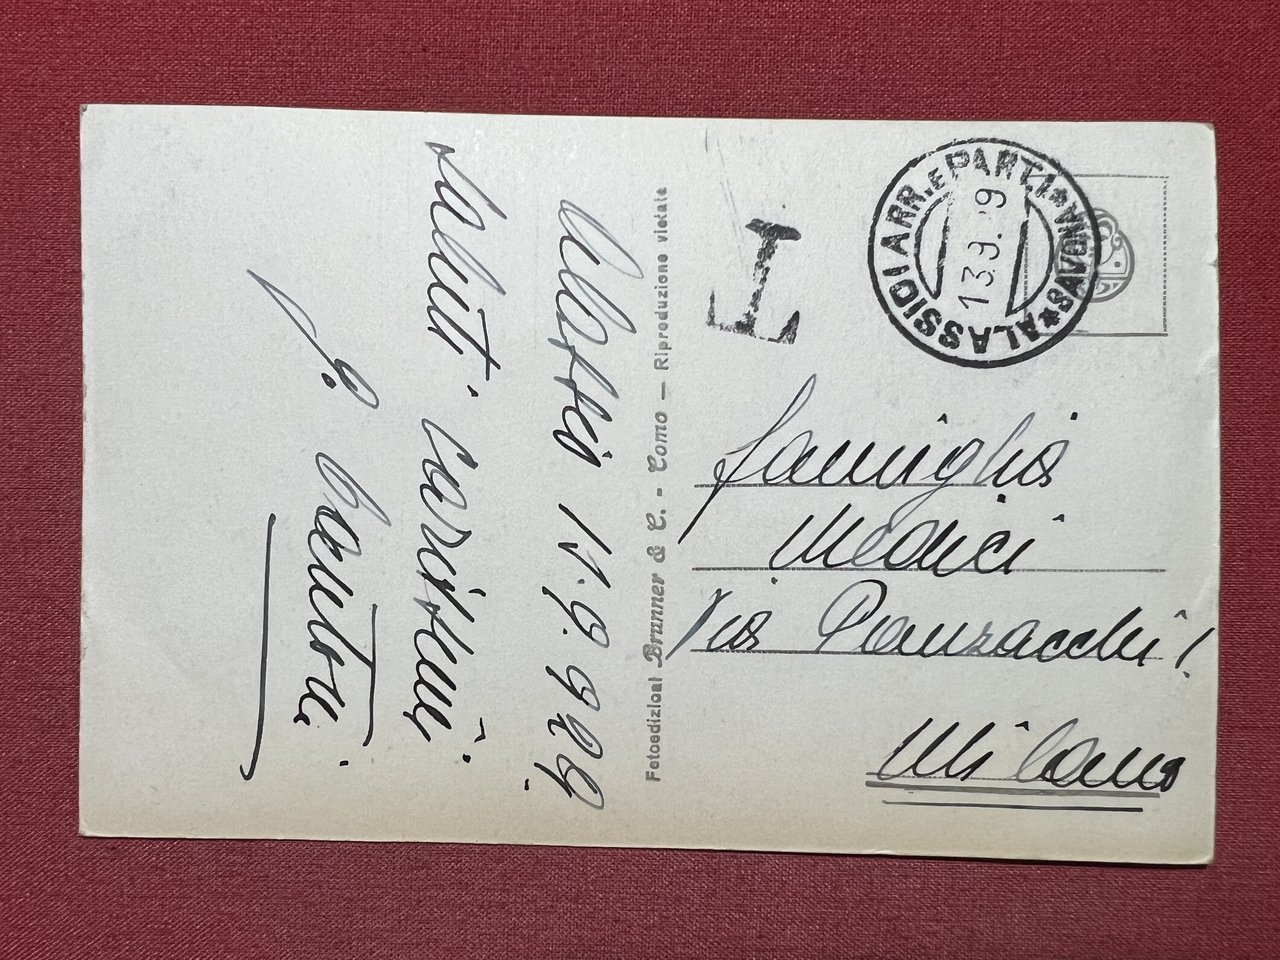 Alassio 11.9.929.
saluti carissimi
Fotoedizioni Brunner & C. - Como — Riproduzione vietata
T
ALASSIO ARR. E PART. * SAVONA *
13.9. 29
famiglia
Medici
Via Panzacchi 1
Milano